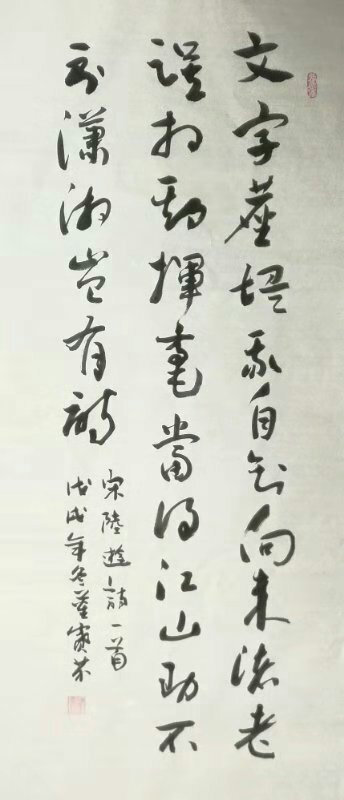 文字塵埃我自知向来諸老
誤相期揮毫當得江山助不
到瀟湘豈有詩
宋陸遊詩一首
戊戌年冬董